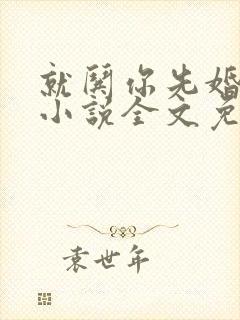 就闚你先婚
小說全文免
袁世年